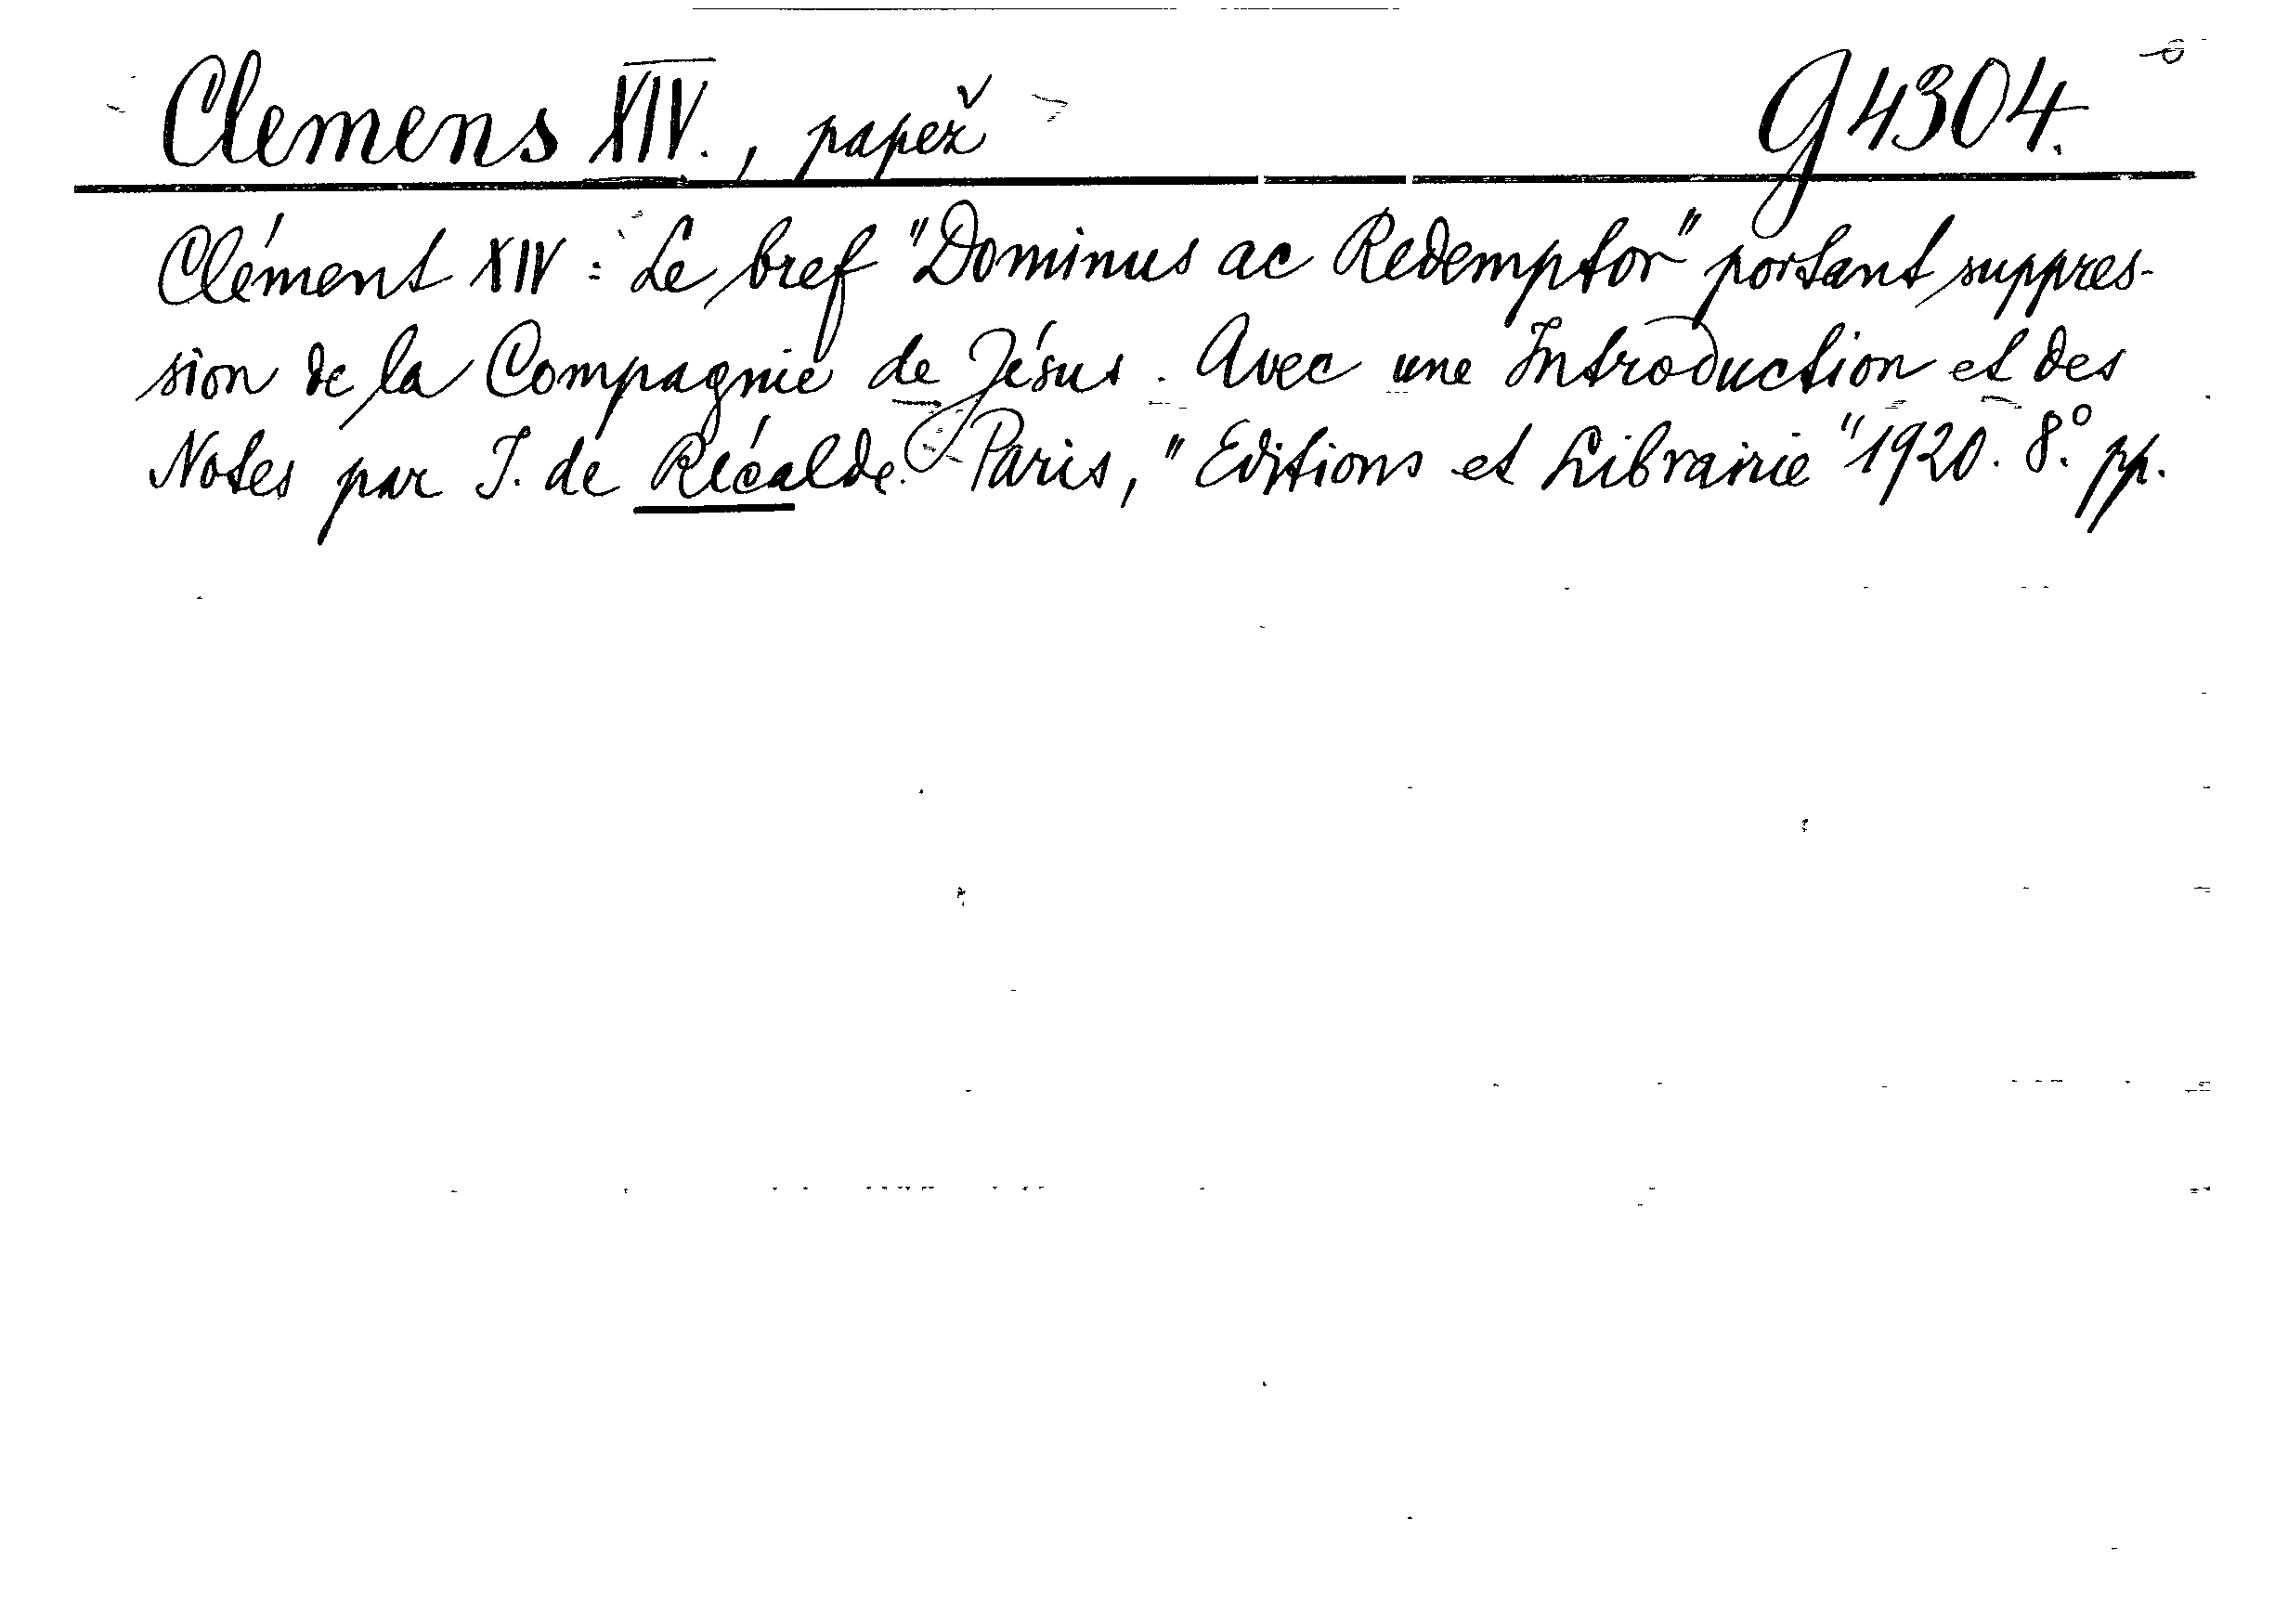 Clemens XIV., papež G 4304.
Clément XIV : Le bref "Dominus ac Redemptor" portant suppres-
sion de la Compagnie de Jésus. Avec une Introduction et des
Notes par I. de Récalde. Paris, "Editions et Librairie" 1920. 8.° pp.